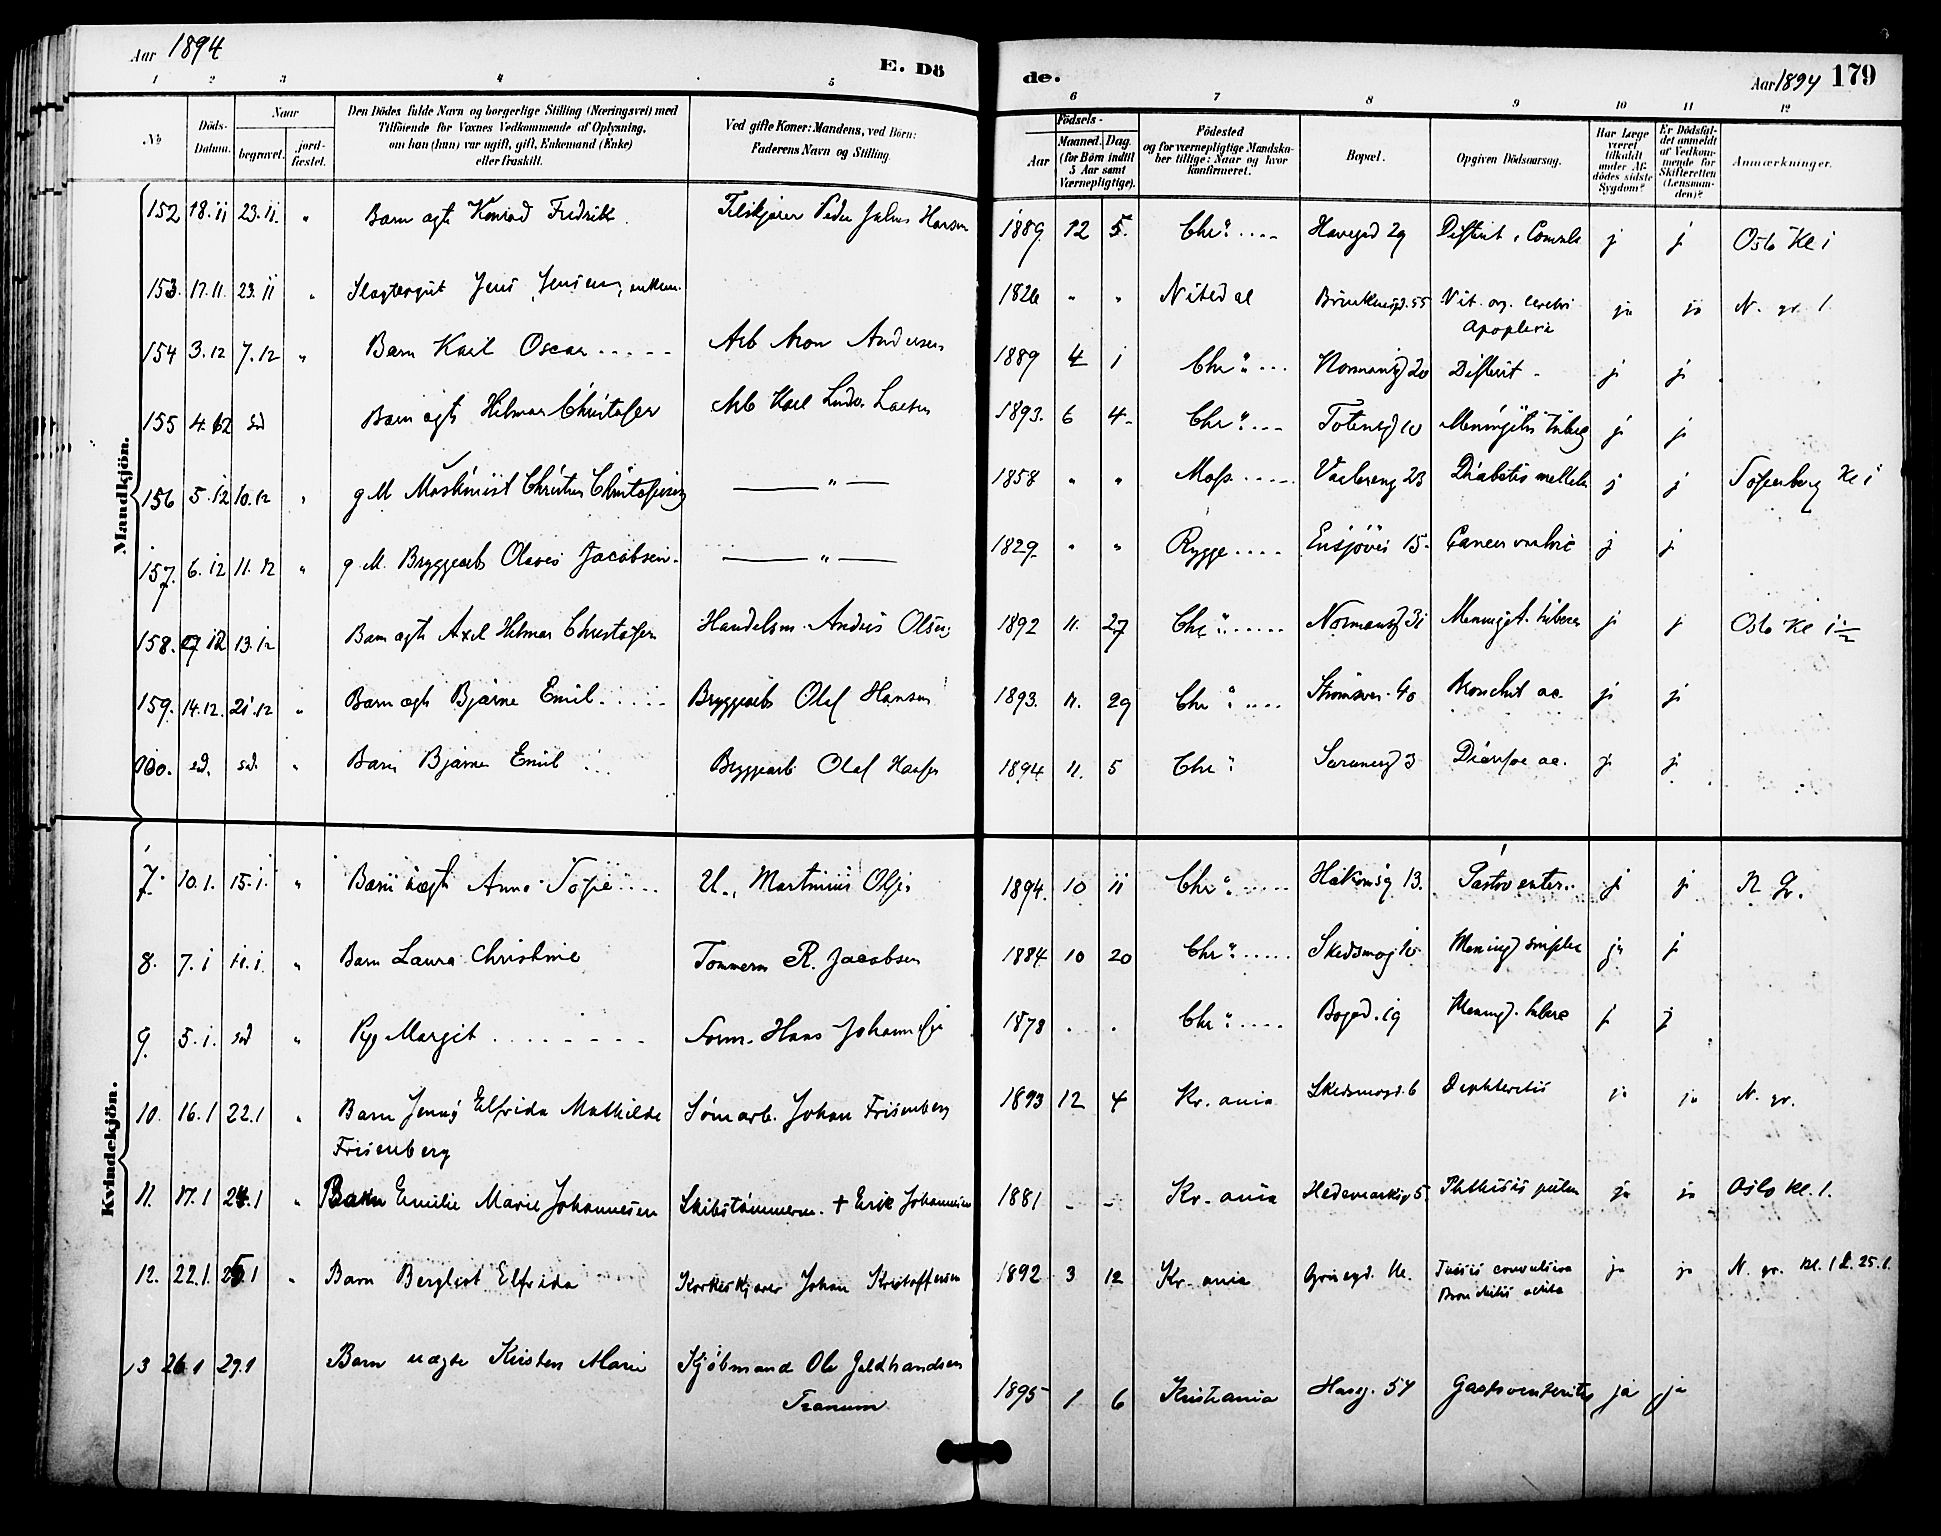 Aar 1894
E. Dö
de.
Aar 1894 179
1 2 3 4 5 6 7 8 9 10 11 12
No
Döds-
Datum.
Naar
begravet.
jord-
fæstet.
Den Dödes fulde Navn og borgerlige Stilling (Næringsvei) med
Tilföiende for Voxnes Vedkommende af Oplysning,
om han (hun) var ugift, gift, Enkemand (Enke)
eller fraskilt.
Ved gifte Koner: Mandens, ved Börn:
Faderens Navn og Stilling.
Födsels-
Aar
Maaned. Dag.
(for Børn indtil
5 Aar samt
Værnepligtige).
Födested
og for værnepligtige Mandska-
ber tillige: Naar og hvor
konfirmeret.
Bopæl.
Opgiven Dödsaarsag.
Har Læge
været
tilkaldt
under Af-
dödes sidste
Sygdom?
Er Dödsfal-
det anmeldt
af Vedkom-
mende for
Skifteretten
(Lensman-
den)?
Anmærkninger.
Mandkjön.
152 18.11 23.11 " Barn ægte Konrad Fredrik. Peder Julius Hansen 1889. 12 5. Chr.a 29 Difterit j j Oslo Kl 1
153. 17.11. 23.11 " Jens Jensen, enkem. 1826 " " Nitedal 55 Vit. og. cerebri ja ja N. gr. 1.
Apoplexia
154 3.12 7.12 " Barn Karl Oscar Arb Aron Andersen 1889 4 1 Chr.a Normansg 20 Difterit j j
155 4.12 sd Barn ægte Hilmar Christofer Arb Karl Larsen 1893. 6 4 Chr.a Totensg 10 Meningitis tuberc j j
156 5.12 10.12 " g M Maskinist Christian Christofersen " 1858 " " Moss Vaalereng 23 Diabetis mellitu j j Kl 1
157. 6.12 11.12 " g. M. Bryggearb Olaves Jacobsen " 1829. " " Rygge Ensjøvei 15 Cancer j j
158. 13.12 Barn ægte Axel Hilmar Christofer Handelsm. Olsen 1892 11. 27 Chr.a Normansg 31 Meningit. tuberc j j Oslo Kl 1
159. 14.12. 21.12 " Barn ægte Bjarne Emil Bryggearb Olaf Hansen 1893. 11. 29 Chr.a Strømsvei. 40 Bronchit ac. j j
160. sd. sd. " Barn Bjarne Emil Bryggearb Olaf Hansen 1894 11. 5 Chr.a 3 Diarrhoe ac. j j
Kvindekjön.
7. 10.1. 15.1. " Barn uægte Anna Sofie U. Martinius Olsen 1894. 10 11 Chr.a Håkonsg 13. Gastro enter. j j N. Gr.
8. 7.1 11.1 " Barn Laura Christine Tømmerm R. Jacobsen 1884 10 20 Chr.a Skedsmog 10 Mening simplex ja j
9. 5.1. sd " Pige Margit Hans Johannesen 1878 . . Chr.a Bogad. 19 Mening. tuberc j j
10. 16.1 22.1 " Barn Jenny Elfrida Mathilde Sømarb. Johan Frisenberg 1893 12 4 Kr.ania Skedsmogd. 6 Dephteritis ja ja N. gr.
Frisenberg
11. 17.1 24.1 " Barn Emilie Marie Johannesen Skibstømmerm. † Erik Johannesen 1881 - - Kr.ania Hedemarksg. 5. Phthisis pulm ja ja Oslo kl. 1.
12. 22.1. 25.1 " Barn Bergliot Elfrida Korkeskjærer Johan Kristoffersen 1892 3 12 Kr.ania Tussis convulsiva ja ja N. gr. kl. 1 25.1.
Bronchitis
13 26.1 29.1 Barn uægte Kirsten Marie Kjøbmand Ole 1895 1 6 Kristiania Hasg. 54 Gastroenterites ja ja
Tranum